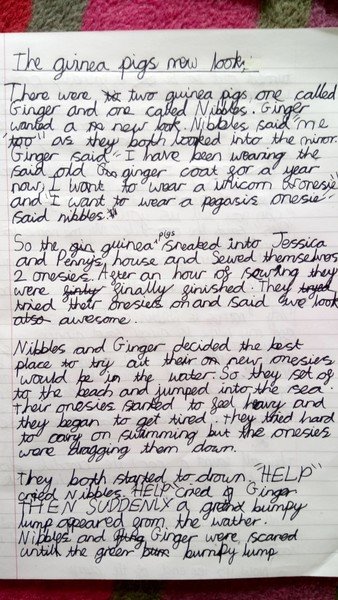 The guinea pigs new look.
There were two guinea pigs one called
Ginger and one called Nibbles. Ginger
wanted a new look. Nibbles said "me
too" as they both looked into the mirror.
Ginger said "I have been wearing the
said old ginger coat for a year
now, I want to wear a unicorn onesie"
and I want to wear a pegasis onesie"
said nibbles."
So the guinea pigs sneaked into Jessica
and Penny's house and Sewed themselves
2 onesies. After an hour of sowing they
were finally finished. They tryed
tried their onesies on and said we look
also awesome.
Nibbles and Ginger decided the best
place to try out their new onesies
would be in the water. So they set of
to the beach and jumped into the sea.
Their onesies started to feel heavy and
they began to get tired. they tried hard
to cary on swimming but the onesies
were dragging them down.
They both started to drown. "HELP"
cried Nibbles. HELP cried Ginger
THEN SUDDENLY a bumpy
lump appeared from the wather.
Nibbles and Ginger were scared
untill the green bumpy lump